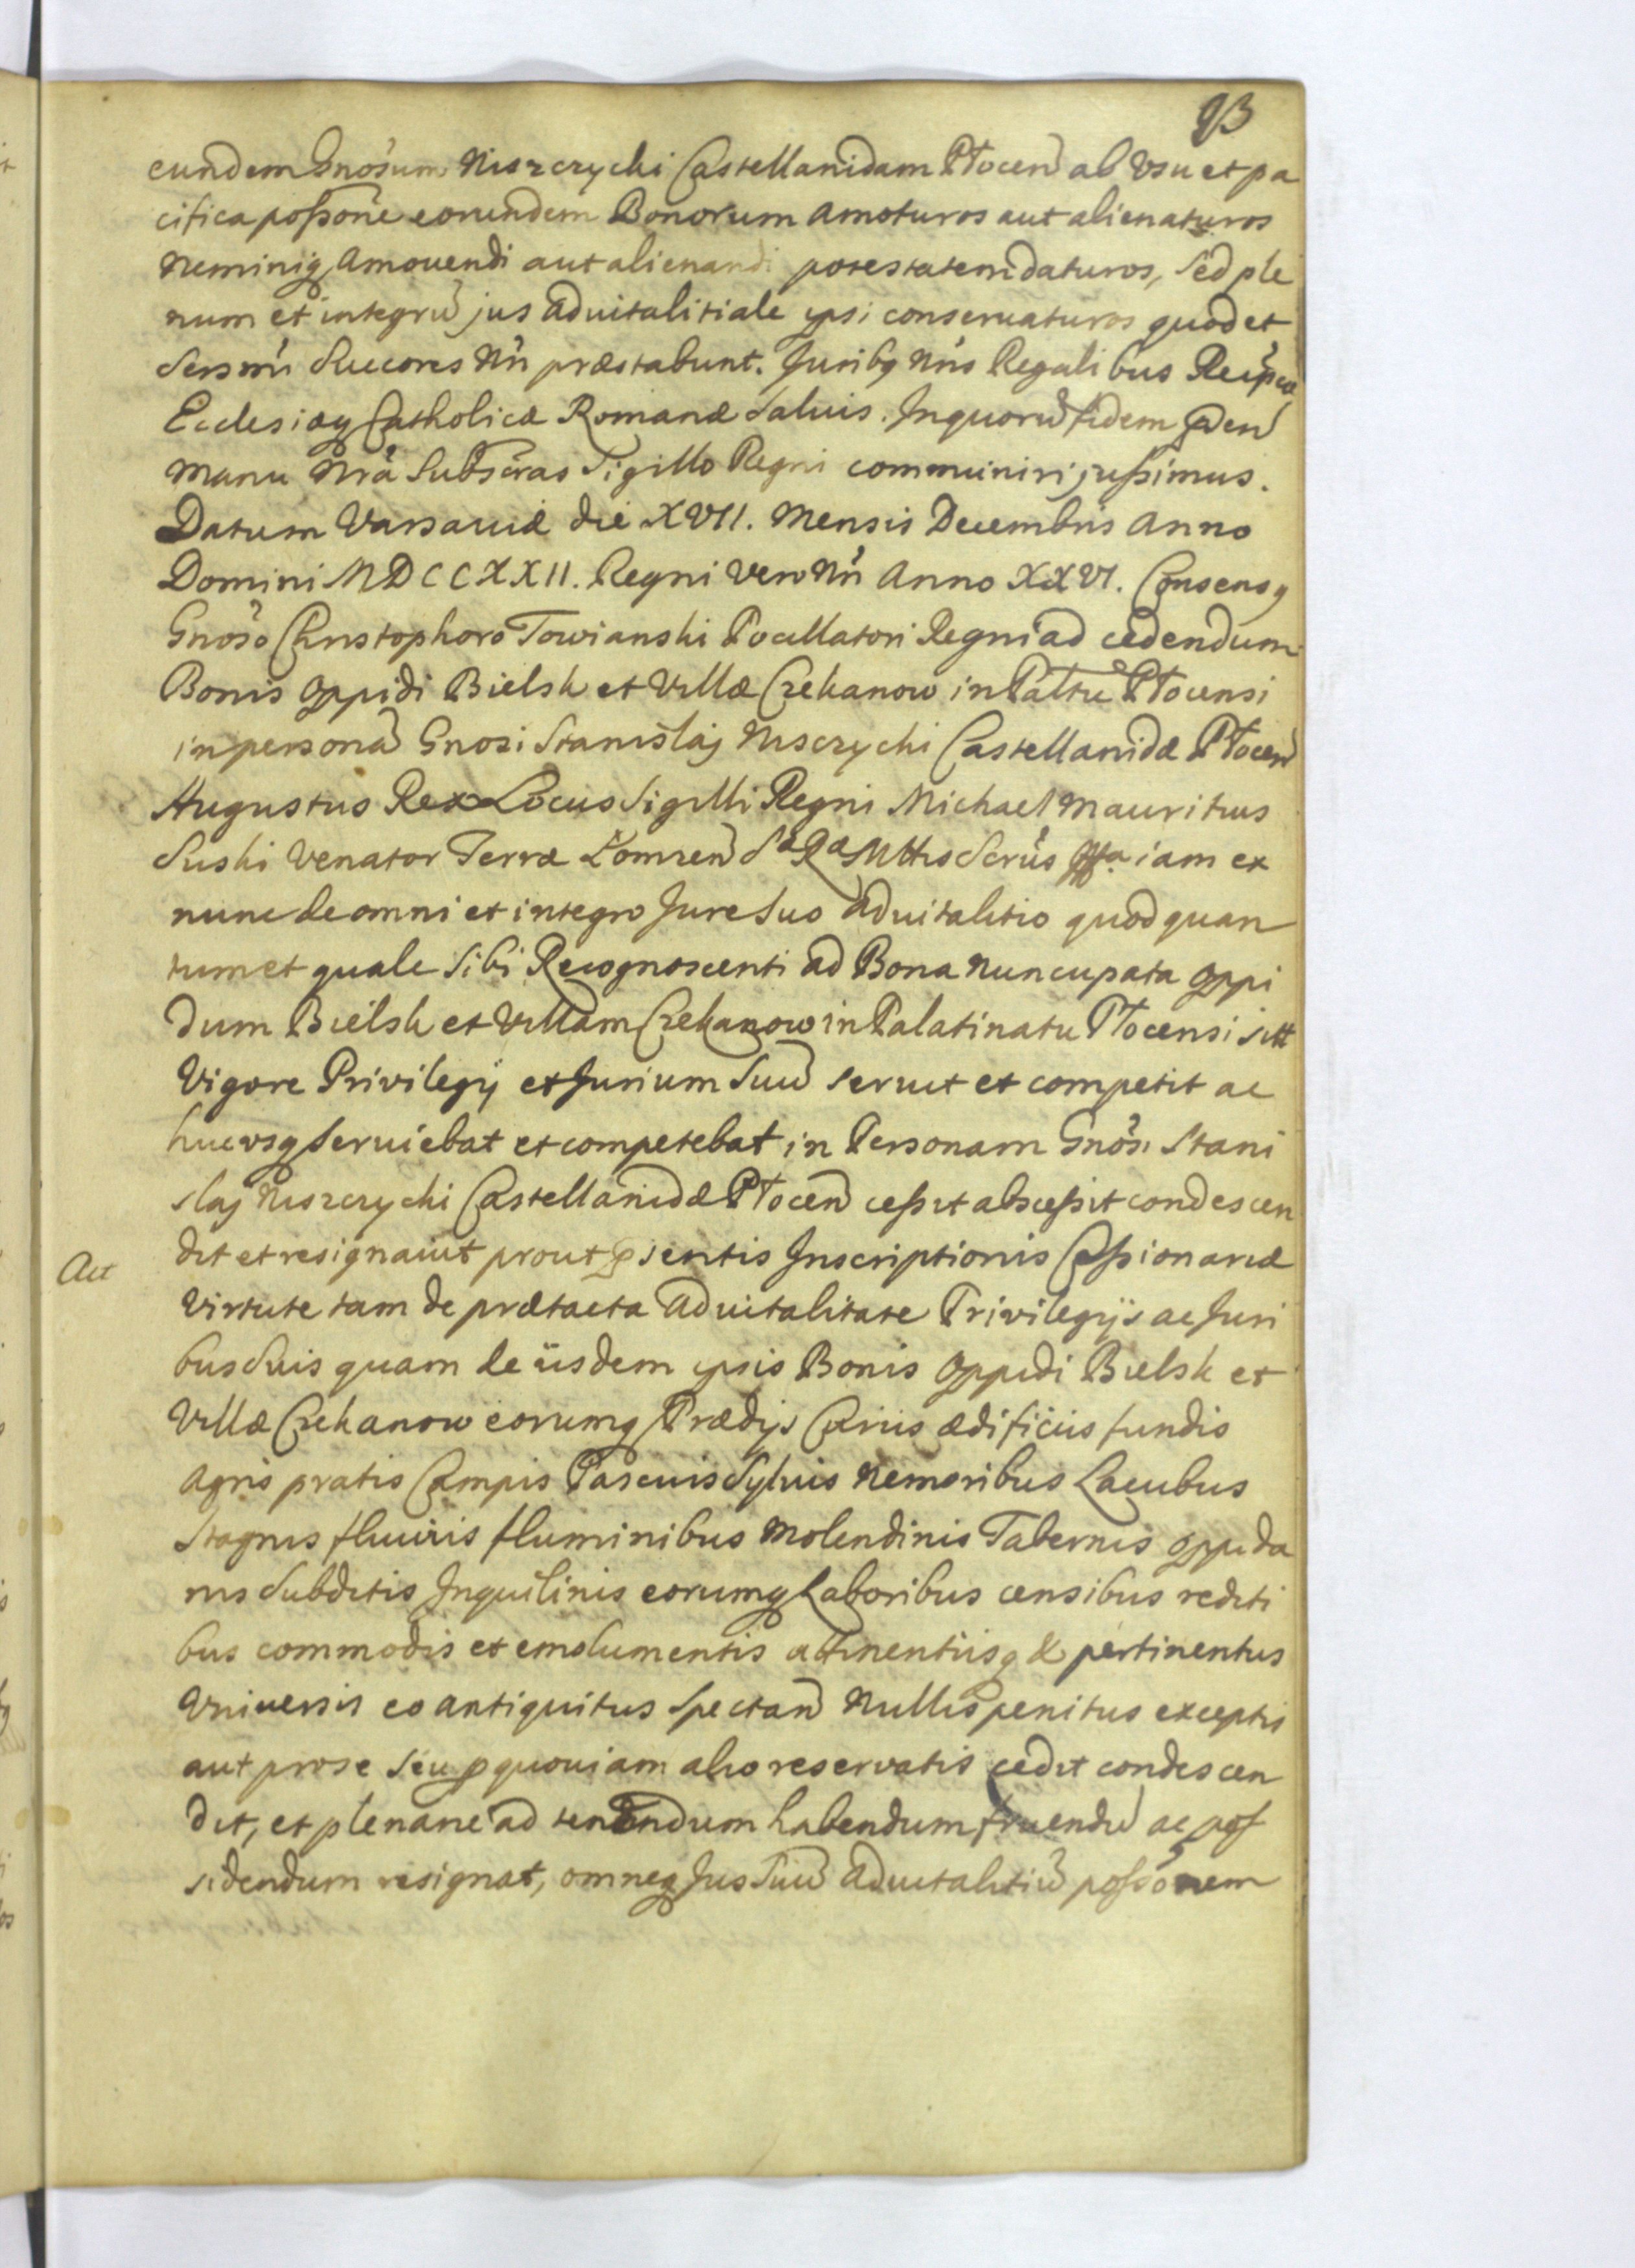 93
eundem Gnosum Niszczycki Castellanidam Płocen ab Usu et pa
cifica possone eorundem Bonorum amoturos aut alienaturos
Neminiq amovendi aut alienandi potestatem daturos, sed ple
num et integrũ jus advitalitiale ipsi conservaturos quod et
Sersmi Succores Nri præstabunt. Juribq Nris Regalibus Reipcæ
Ecclesiæq Catholicæ Romanæ Salvis. In quorũ fidem pñten
Manu Nrã Subscras Sigillo Regni communiri jussimus.
Datum Varsaviæ die XVII. Mensis Decembris Anno
Domini MDCCXXII. Regni Vero Nri Anno XXVI. Consensq
Gnoso Christophoro Towianski Pocillatori Regni ad cedendum
Bonis Oppidi Bielsk et Villæ Czekanow in Paltũ Płocensi
in personã Gnosi Stanislaj Nisczycki Castellanidæ Płocen
Augustus Rex Locus Sigilli Regni Michael Mauritius
Suski Venator Terræ Łomzen Sæ Ræ Mttis Scrius mppa iam ex
nunc de omni et integro Jure Suo advitalitio quod quan
tum et quale Sibi Recognoscenti ad Bona nuncupata Oppi
dum Bielsk et Villam Czekanow in Palatinatu Płocensi sitt
Vigore Privilegij et Jurium Suũ servit et competit ac
hucusq serviebat et competebat in Personam Gnosi Stani
slaj Niszczycki Castellanidæ Płocen cessit abscessit condescen
Act
dit et resignavit prout psentis Inscriptionis Cessionariæ
Virtute tam de prætacta advitalitate Privilegijs ac Juri
bus Suis quam de iisdem ipsis Bonis Oppidi Bielsk et
Villæ Czekanow eorumq Prædijs Curiis ædificiis fundis
Agris pratis Campis Pascuis Sylvis Nemoribus Lacubus
Stagnis fluviis fluminibus Molendinis Tabernis Oppida
nis Subditis Inquilinis eorumq Laboribus censibus rediti
bus commodis et emolumentis attinentiisq & pertinentiis
Universis eo antiquitus spectan Nullis penitus exceptis
aut pro se seu p quoviam alio reservatis cedit condescen
dit, et plenarie ad tenendum habendum fruendũ ac pos
sidendum resignat, omneq Jus Suũ advitalitiũ possonem